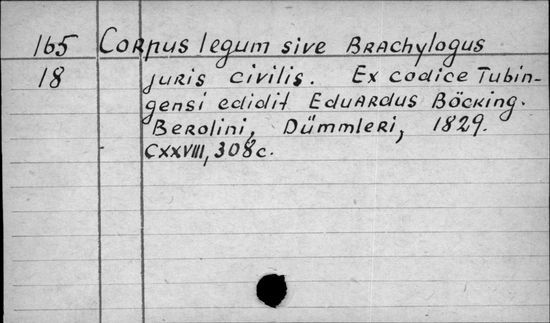 165 Corpus legum sive Brachylogus
18 juris civilis. Ex codice Tubin-
gensi edidit Eduardus Böcking.
Berolini, Dümmleri, 1829.
CXXVIII, 308c.